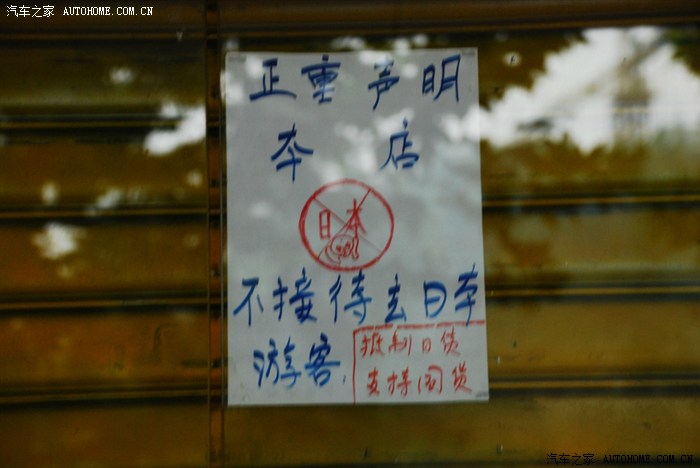 汽车之家 AUTOHOME.COM.CN
正重声明
本店
日本
不接待去日本
游客.
抵制日货
支持国货
汽车之家 AUTOHOME.COM.CN